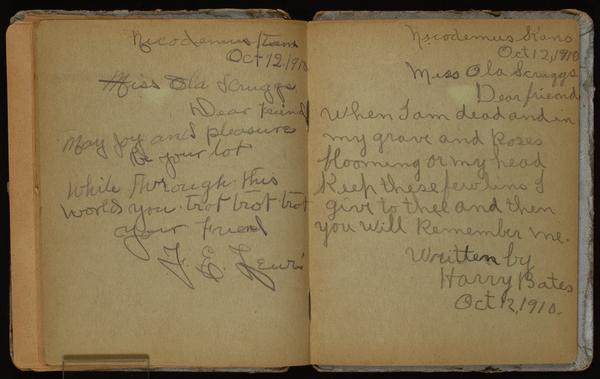 Nicodemus Kans
Oct 12, 1910
Miss Ola Scruggs
Dear friend
May joy and pleasure
be your lot
While Through this
World you trot trot trot
your friend
J. E. Lewis
Nicodemus Kans
Oct 12, 1910
Miss Ola Scruggs
Dear friend
When I am dead and in
my grave and Roses
blooming or my head
Keep these few lins I
give to thee and then
you will Remember me.
Written by
Harry Bates
Oct 12, 1910.